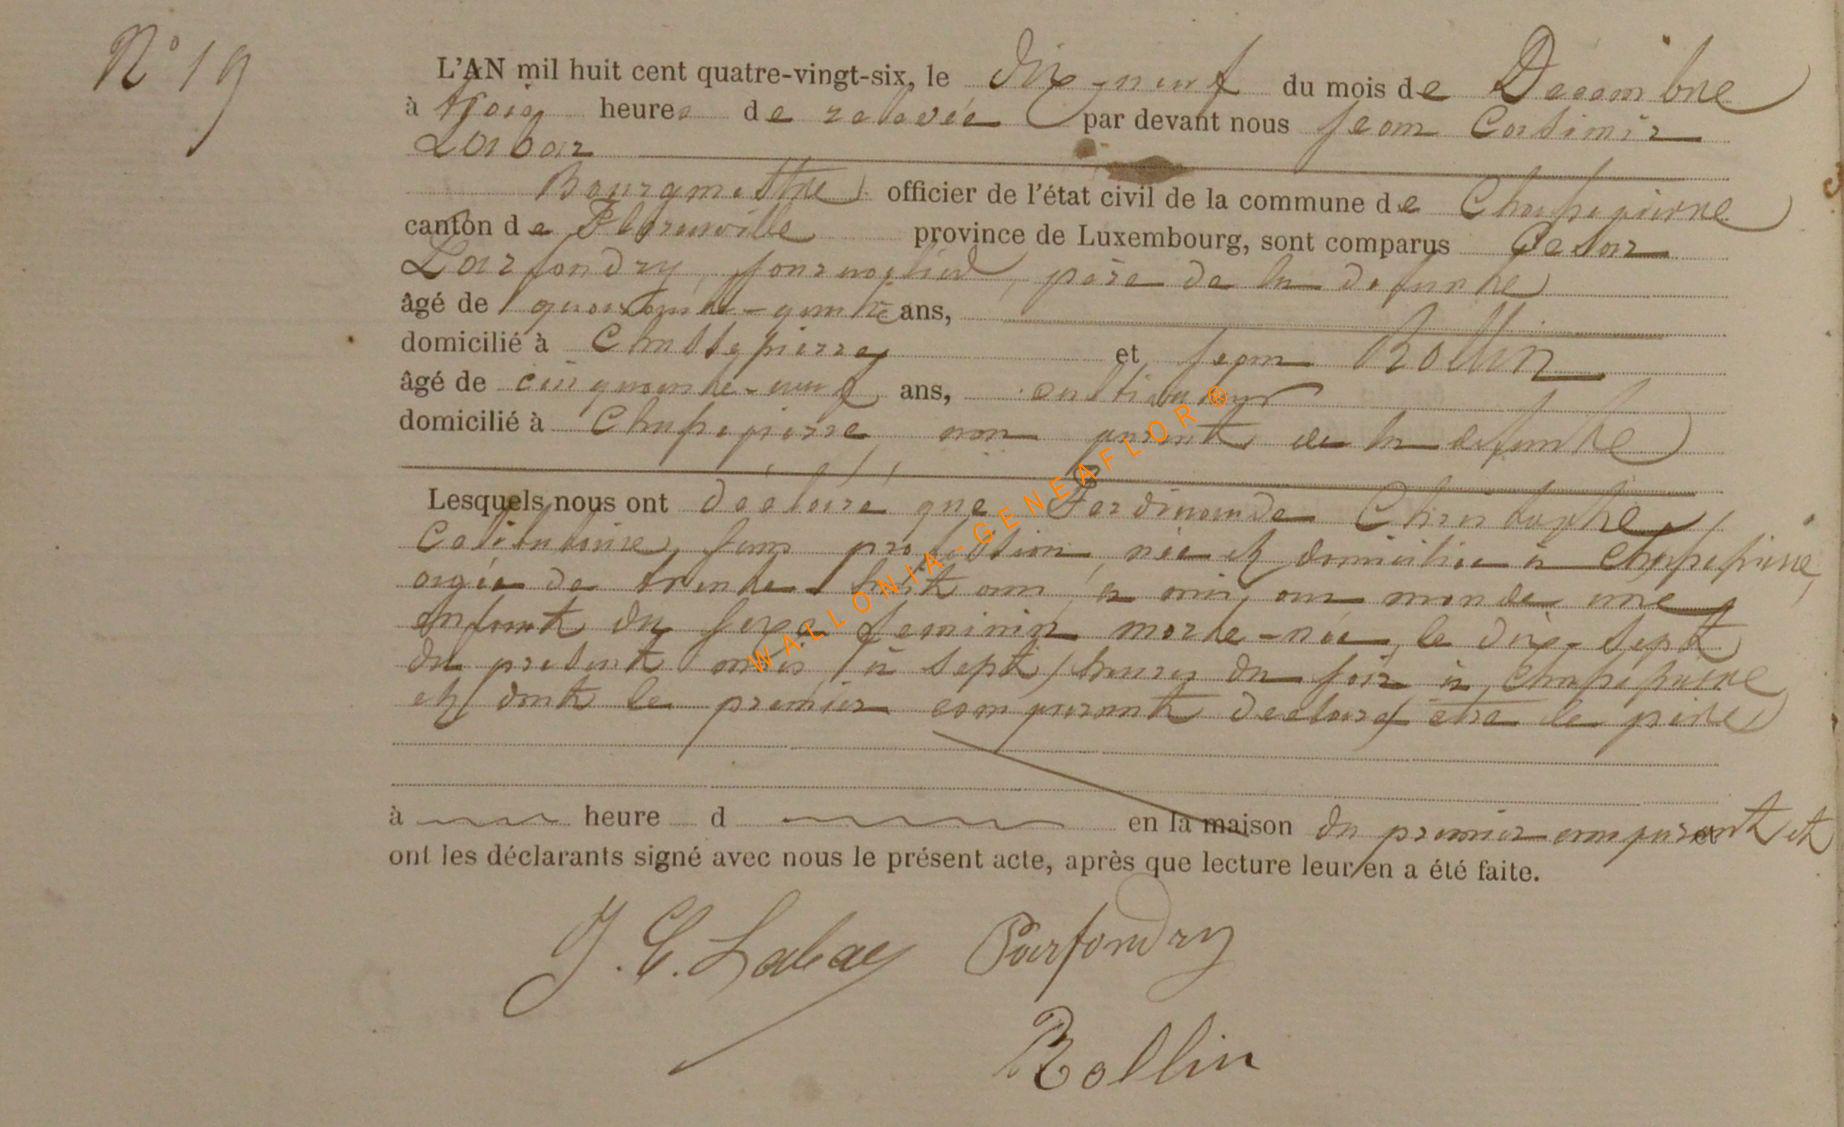 N° 19
L'AN mil huit cent quatre-vingt-six, le dix-neuf du mois de Décembre
à trois heures de relevée par devant nous Jean Casimir
Labar
Bourgmestre officier de l'état civil de la commune de Chassepierre
canton de Florenville province de Luxembourg, sont comparus
Parfondry, journalier, père de la défunte
âgé de quarante- ans,
domicilié à Chassepierre et Jean Rollin
âgé de cinquante-neuf ans, cultivateur
domicilié à Chassepierre, non parent de la défunte
Lesquels nous ont déclaré que Ferdinande Christophe,
célibataire, sans profession, née et domiciliée à Chassepierre,
agée de trente huit ans, a mis au monde une
enfant du sexe feminin morte-née, le dix-sept
du présent mois, à sept heures du soir à Chassepierre
et dont le premier comparant declare être le père
à heure d en la maison du premier comparant et
ont les déclarants signé avec nous le présent acte, après que lecture leur en a été faite.
J. C. Labar Parfondry
Rollin
WALLONIA-GENEAFLOR ©